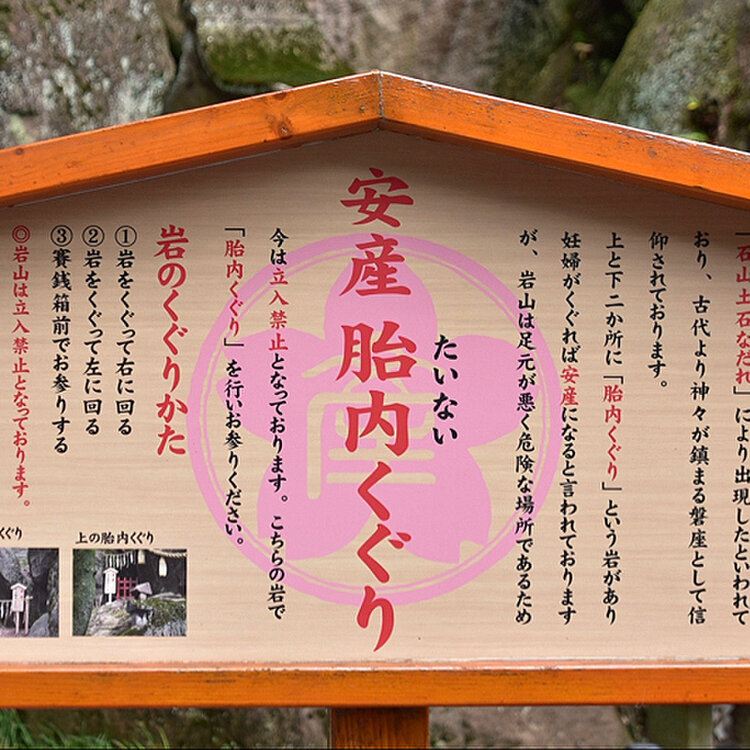 「石山土石なだれ」により出現したといわれて
おり、古代より神々が鎮まる磐座として信
仰されております。
上と下二か所に「胎内くぐり」という岩があり
妊婦がくぐれば安産になると言われております
が、岩山は足元が悪く危険な場所であるため
安産 胎内くぐり
たいない
今は立入禁止となっております。こちらの岩で
「胎内くぐり」を行いお参りください。
岩のくぐりかた
①岩をくぐって右に回る
②岩をくぐって左に回る
③賽銭箱前でお参りする
◎岩山は立入禁止となっております。
上の胎内くぐり
くぐり